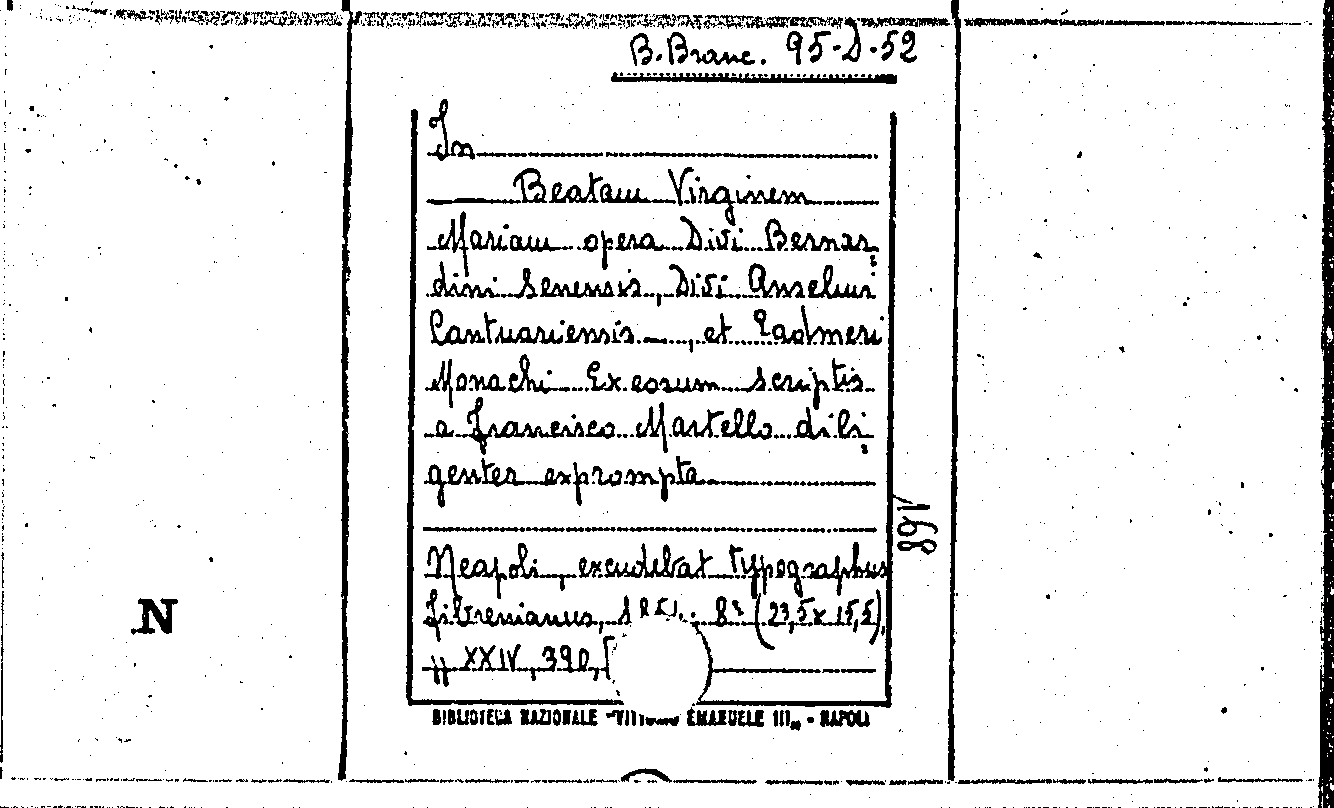 B. Branc. 95-D-52
In
Beatam Virginem
Mariam opera Divi Bernar-
dini Senensis, Divi Anselmi
Cantuariensis, et Eadmeri
Monachi Ex eorum scriptis
a Francisco Martello dili-
genter exprompta
168
Neapoli, excudebat typographus
Fibrenianus, 8° (23,5x15,5),
N
pp XXIV, 390, [
BIBLIOTECA NAZIONALE "VITTORIO EMANUELE III„ - NAPOLI